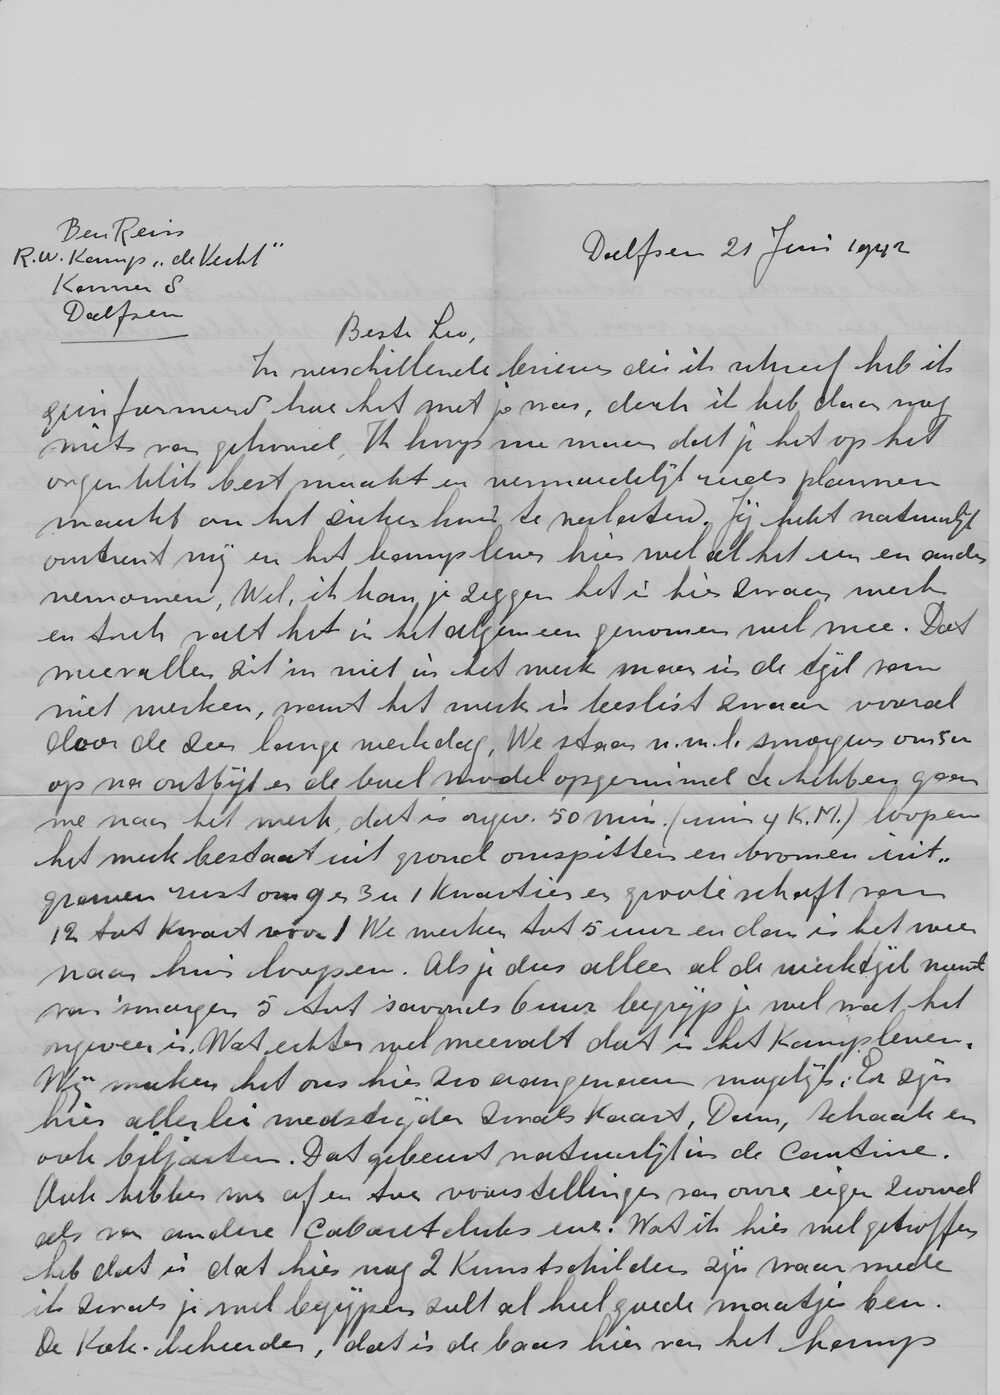 Ben Reiss
R.W. Kamp „de Vecht”
Kamer 8
Dalfsen
Dalfsen 21 Juni 1942
Beste Leo,
In verschillende brieven die ik schreef heb ik
geinformeerd hoe het met je was, doch ik heb daar nog
niets van gehoord, Ik hoop nu maar dat je het op het
oogenblik best maakt en vermoedelijk reeds plannen
maakt om het ziekenhuis te verlaten. Jij hebt natuurlijk
omtrent mij en het kampleven hier wel al het een en ander
vernomen, Wel, ik kan je zeggen het is hier zwaar werk
en toch valt het in het algemeen genomen wel mee. Dat
meevallen zit 'm niet in het werk maar in de tijd van
niet werken, want het werk is beslist zwaar vooral
door de zeer lange werkdag, We staan n.m.l. smorgens om 5 u
op na ontbijt en de boel wodel opgeruimd te hebben gaan
we naar het werk, dat is ongev. 50 min. (ruim 4 K.M.) loopen
het werk bestaat uit grond omspitten en bromen uit„
graven rust om 9 en 3 u 1 kwartier en groote schaft van
12 tot kwart voor 1 We werken tot 5 uur en dan is het weer
naar huis loopen. Als je dus alleen al de werktijd neemt
van 'smorgens 5 tot 'savonds 6 uur begrijp je wel wat het
ongeveer is. Wat echter wel meevalt dat is het Kampleven.
Wij maken het ons hier zoo aangenaam mogelijk. Er zijn
hier allerlei wedstrijden zooals Kaart, Dam, schaak en
ook biljarten. Dat gebeurt natuurlijk in de Cantine.
Ook hebben we af en toe voorstellingen van onze eigen zoowel
als van andere Cabaretclubs enz. Wat ik hier wel getroffen
heb dat is dat hier nog 2 Kunstschilders zijn waar mede
ik zooals je wel begrijpen zult al heel goede maatjes ben.
De Kok-beheerder, dat is de baas hier van het kamp